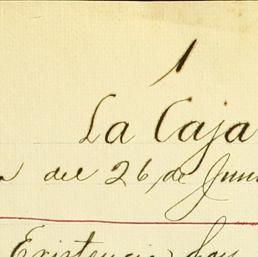 1
La Caja
del 26 de Juni
Existencia hoy